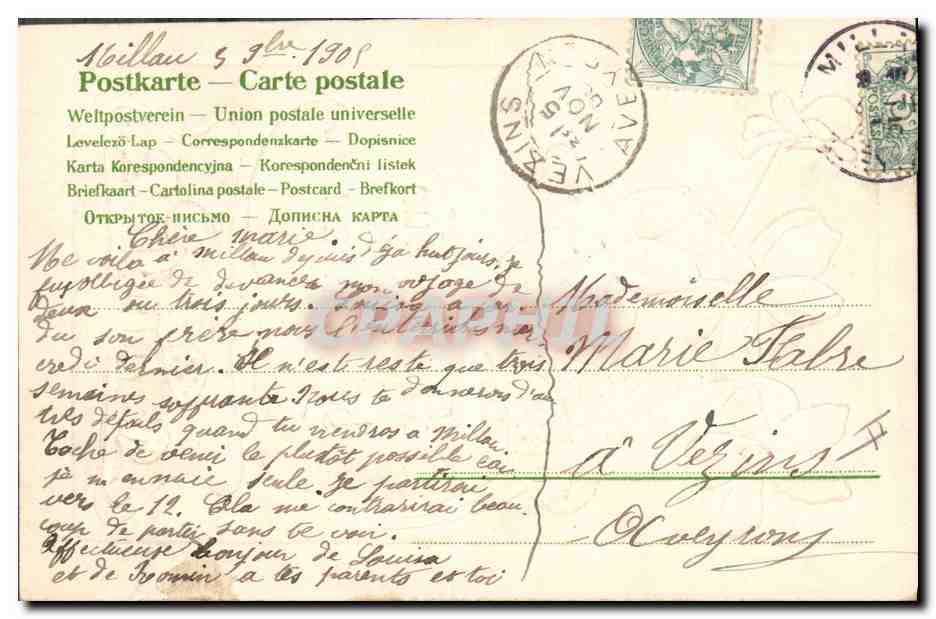 Millau 3 9bre 1905
Postkarte – Carte postale
Weltpostverein – Union postale universelle
Levelező-Lap – Correspondenzkarte – Dopisnice
Karta Korespondencyjna – Korespondenční listek
Briefkaart – Cartolina postale – Postcard – Brefkort
Открытое письмо – Дописна карта
Chère marie.
Me voila a Millau depuis huit jours, je
fus obligée de devancer mon voyage de
deux ou trois jours.
du son frere nous
credi dernier. Il n'est reste que trois
semaines souffrante Nous te donnerons d'au
tres détails quand tu viendras a Millau
Tache de venir le plutôt possible car
je m'ennuie seule. je partirai
vers le 12. Cela me contrarirai beau
coup de partir sans te voir.
Affectueuse bonjour de Louisa
et de Romin a tes parents et toi
VEZINS AVEYRON
NOV
05
Mademoiselle
Marie Fabre
à Vezins
Aveyron
CPAPHIL